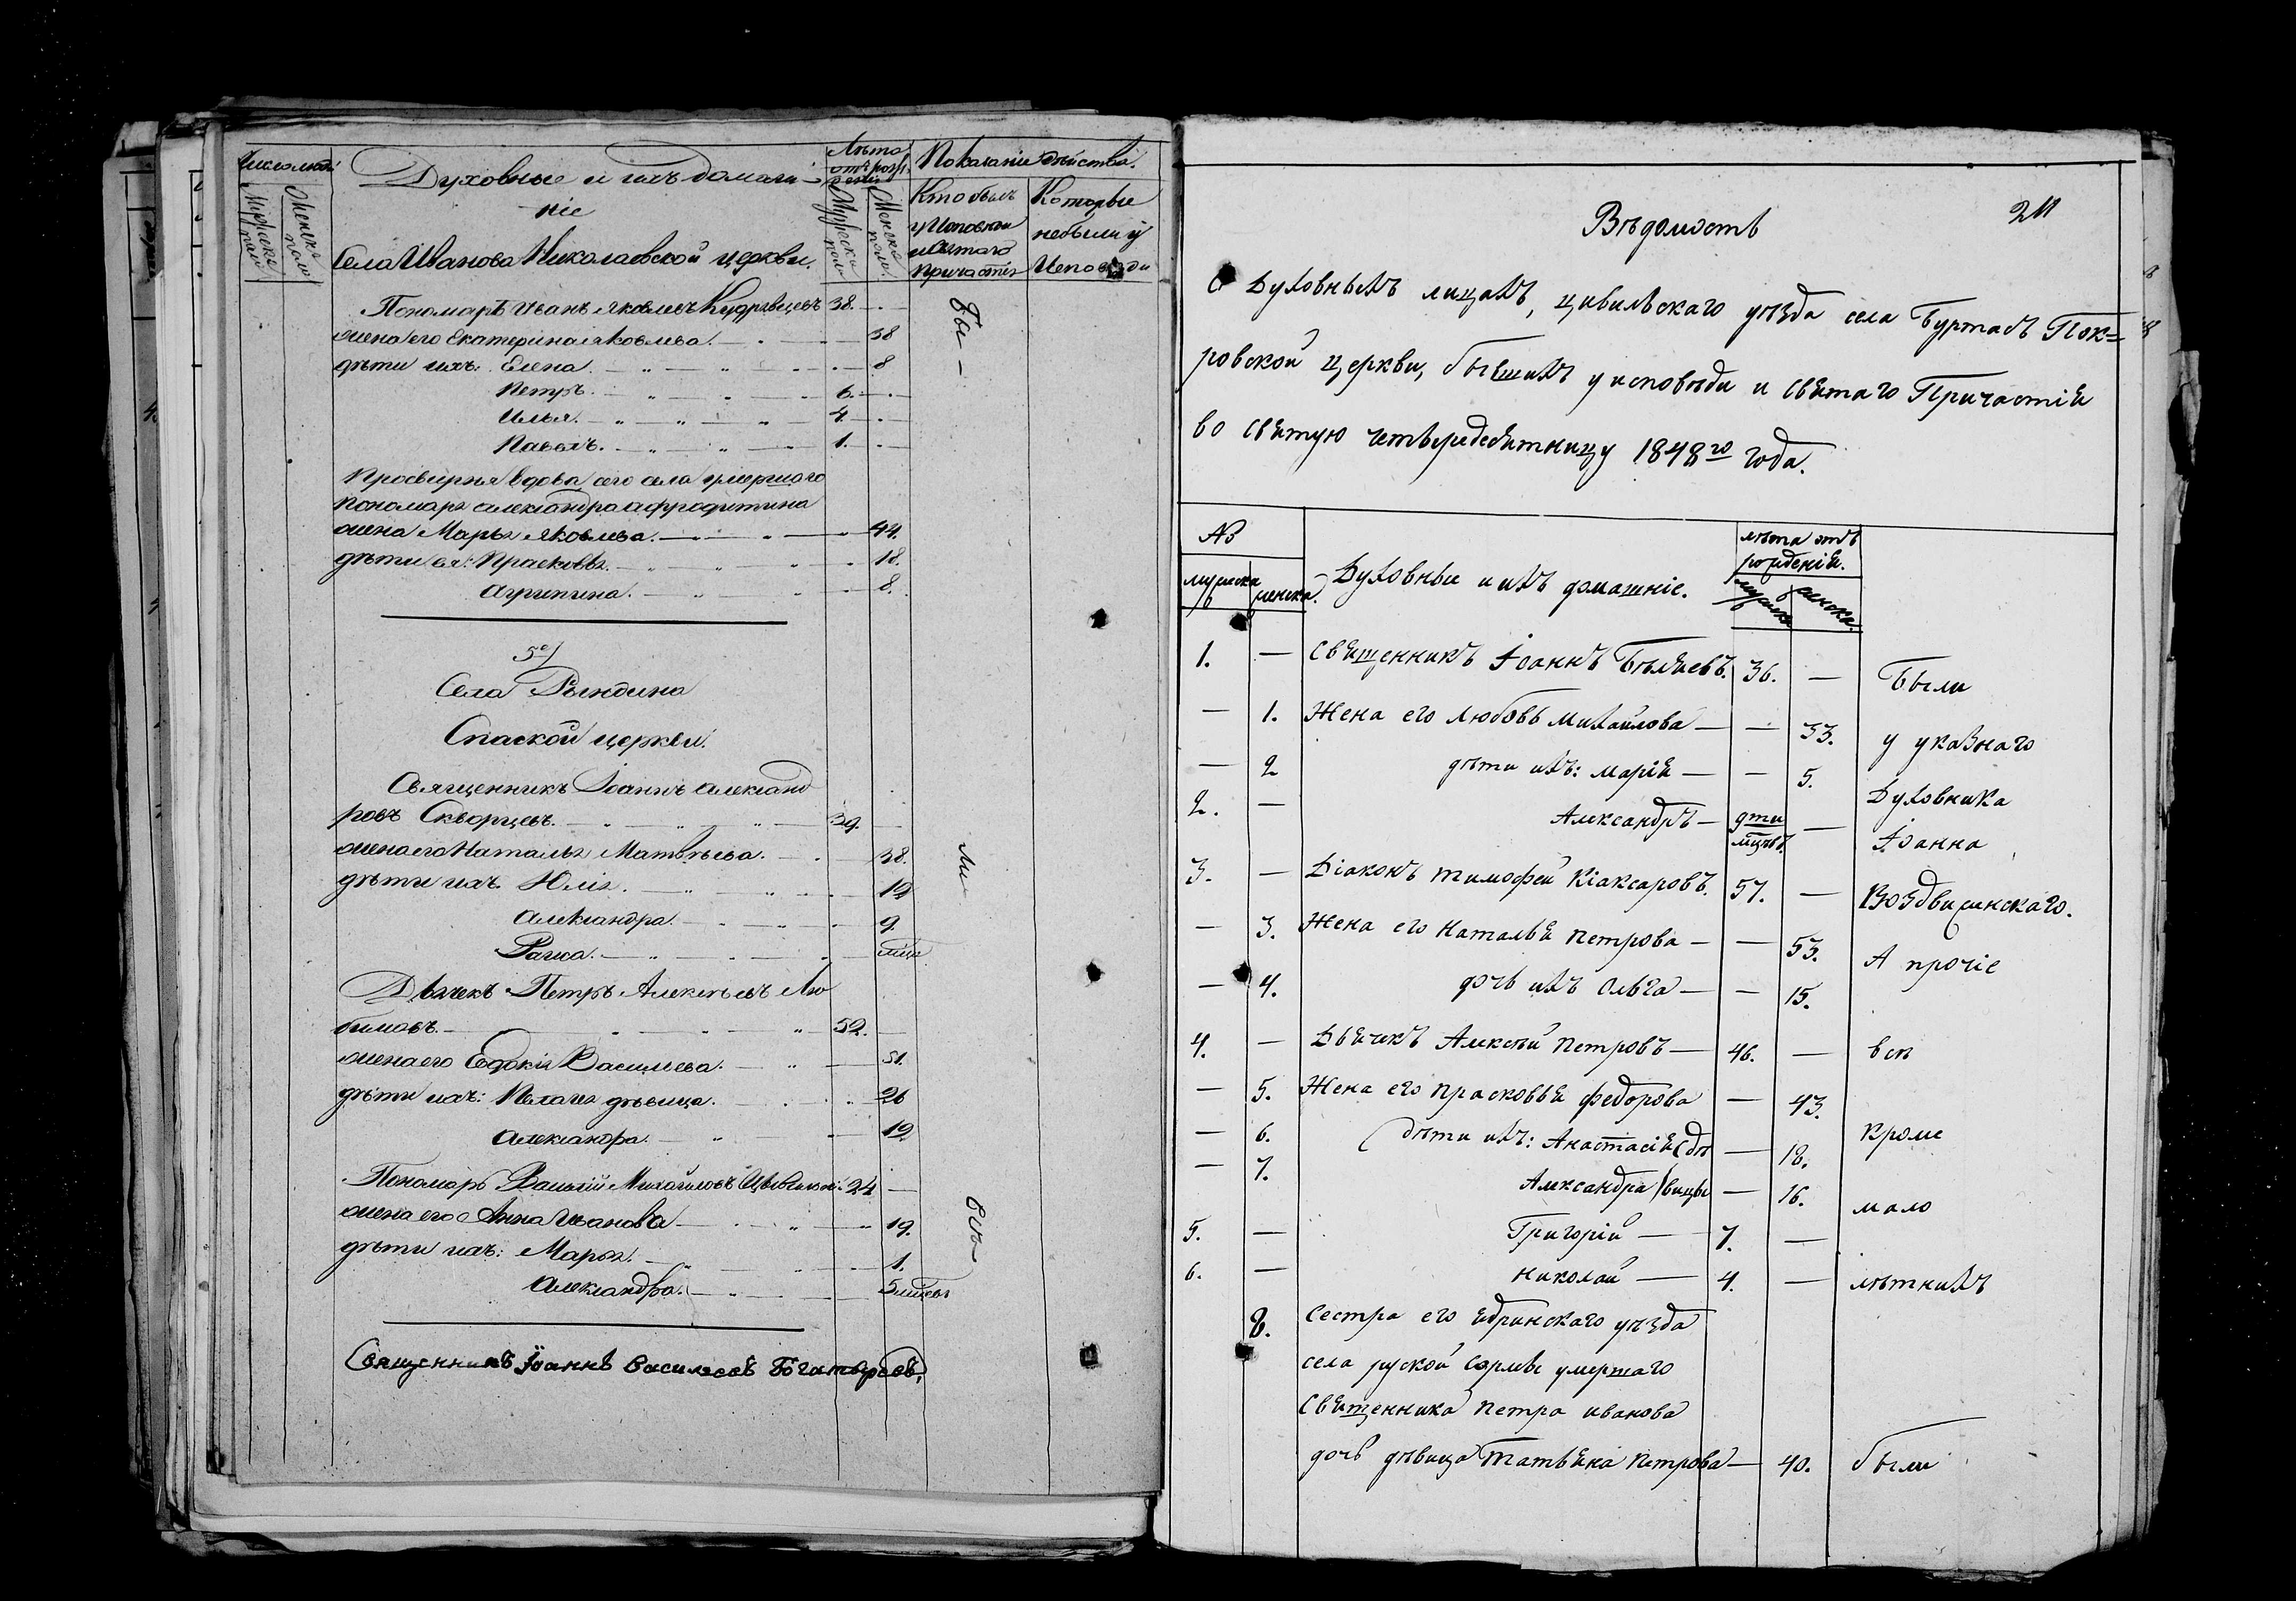 Число людей
Мужеска полу
Женска полу
Духовные и ихъ домаш-
ніе
Села Иванова Николаевской церкви.
Лѣта
отъ рож.
Мужеска полу
Женска полу
Показаніе дѣйства.
Кто былъ
у Исповѣди
и Святаго
Причастія
Которые
небыли у
Исповѣди
Пономарь Иванъ Яковлевъ Кудрявцевъ 38. —
жена его Екатерина Яковлева. — 38
дѣти ихъ: Елена. — 8
Петръ. — 6. —
Илья. — 4. —
Павелъ. — 1. —
Бы —
Просвирня вдова сего села умершаго
Пономаря Александра Афродитина
жена Марья Яковлева. — 44.
дѣти ея: Прасковья. — 18.
Агрипина. — 8.
5е/
Села Рындина
Спаской церкви.
Священникъ Іоаннъ Александ
ровъ Скворцевъ. — 39. —
жена его Наталья Матвѣева. — 38.
ли
дѣти ихъ. Юлія. — 12
Александра. — 9.
Раиса. —
Дьячекъ Петръ Алексѣевъ Лю
бимовъ. — 52. —
жена его Евдокія Васильева. — 51.
дѣти ихъ: Пелагія дѣвица. — 26
Александра. — 19.
Пономарь Василій Михайловъ 24 —
жена его Анна Иванова — 19.
всѣ
дѣти ихъ: Марья. — 1.
Александра. — 5 мѣсяц
Священникъ Іоаннъ Васильевъ Богатыревъ.
211
Вѣдомость
О Духовныхъ лицахъ, цивильскаго уѣзда села Буртасъ Пок=
ровской церкви, бывшихъ у исповѣди и святаго Причастія
во святую четыредесятницу 1848го года.
№
мужеска
женска.
Духовные и ихъ домашніе.
лѣта отъ
рожденія.
мужеска
женска.
1. — Священникъ Іоаннъ Бѣляевъ. 36. — Были
— 1. Жена его Любовь Михайлова — — 33. у указнаго
— 2 дѣти ихъ: Марія — — 5. Духовника
2. — Александръ — —
Іоанна
3. — Діаконъ Тимофей Кіаксаровъ. 57. — Воздвиженскаго.
— 3. Жена его Наталья Петрова — — 53. А прочіе
— 4. дочь ихъ Ольга — — 15.
4. — Дьячекъ Алексѣй Петровъ — 46. — всѣ
— 5. Жена его Прасковья Федорова — 43.
— 6. дѣти ихъ: Анастасія (дѣ — 18. кроме
— 7. Александра / вицы — 16. мало
5. — Григорій — 7. —
6. — Николай — 4. — лѣтнихъ
8. Сестра его Ядринскаго уѣзда
села руской Сормы умершаго
Священника Петра Иванова
дочь дѣвица Татьяна Петрова — 40. были